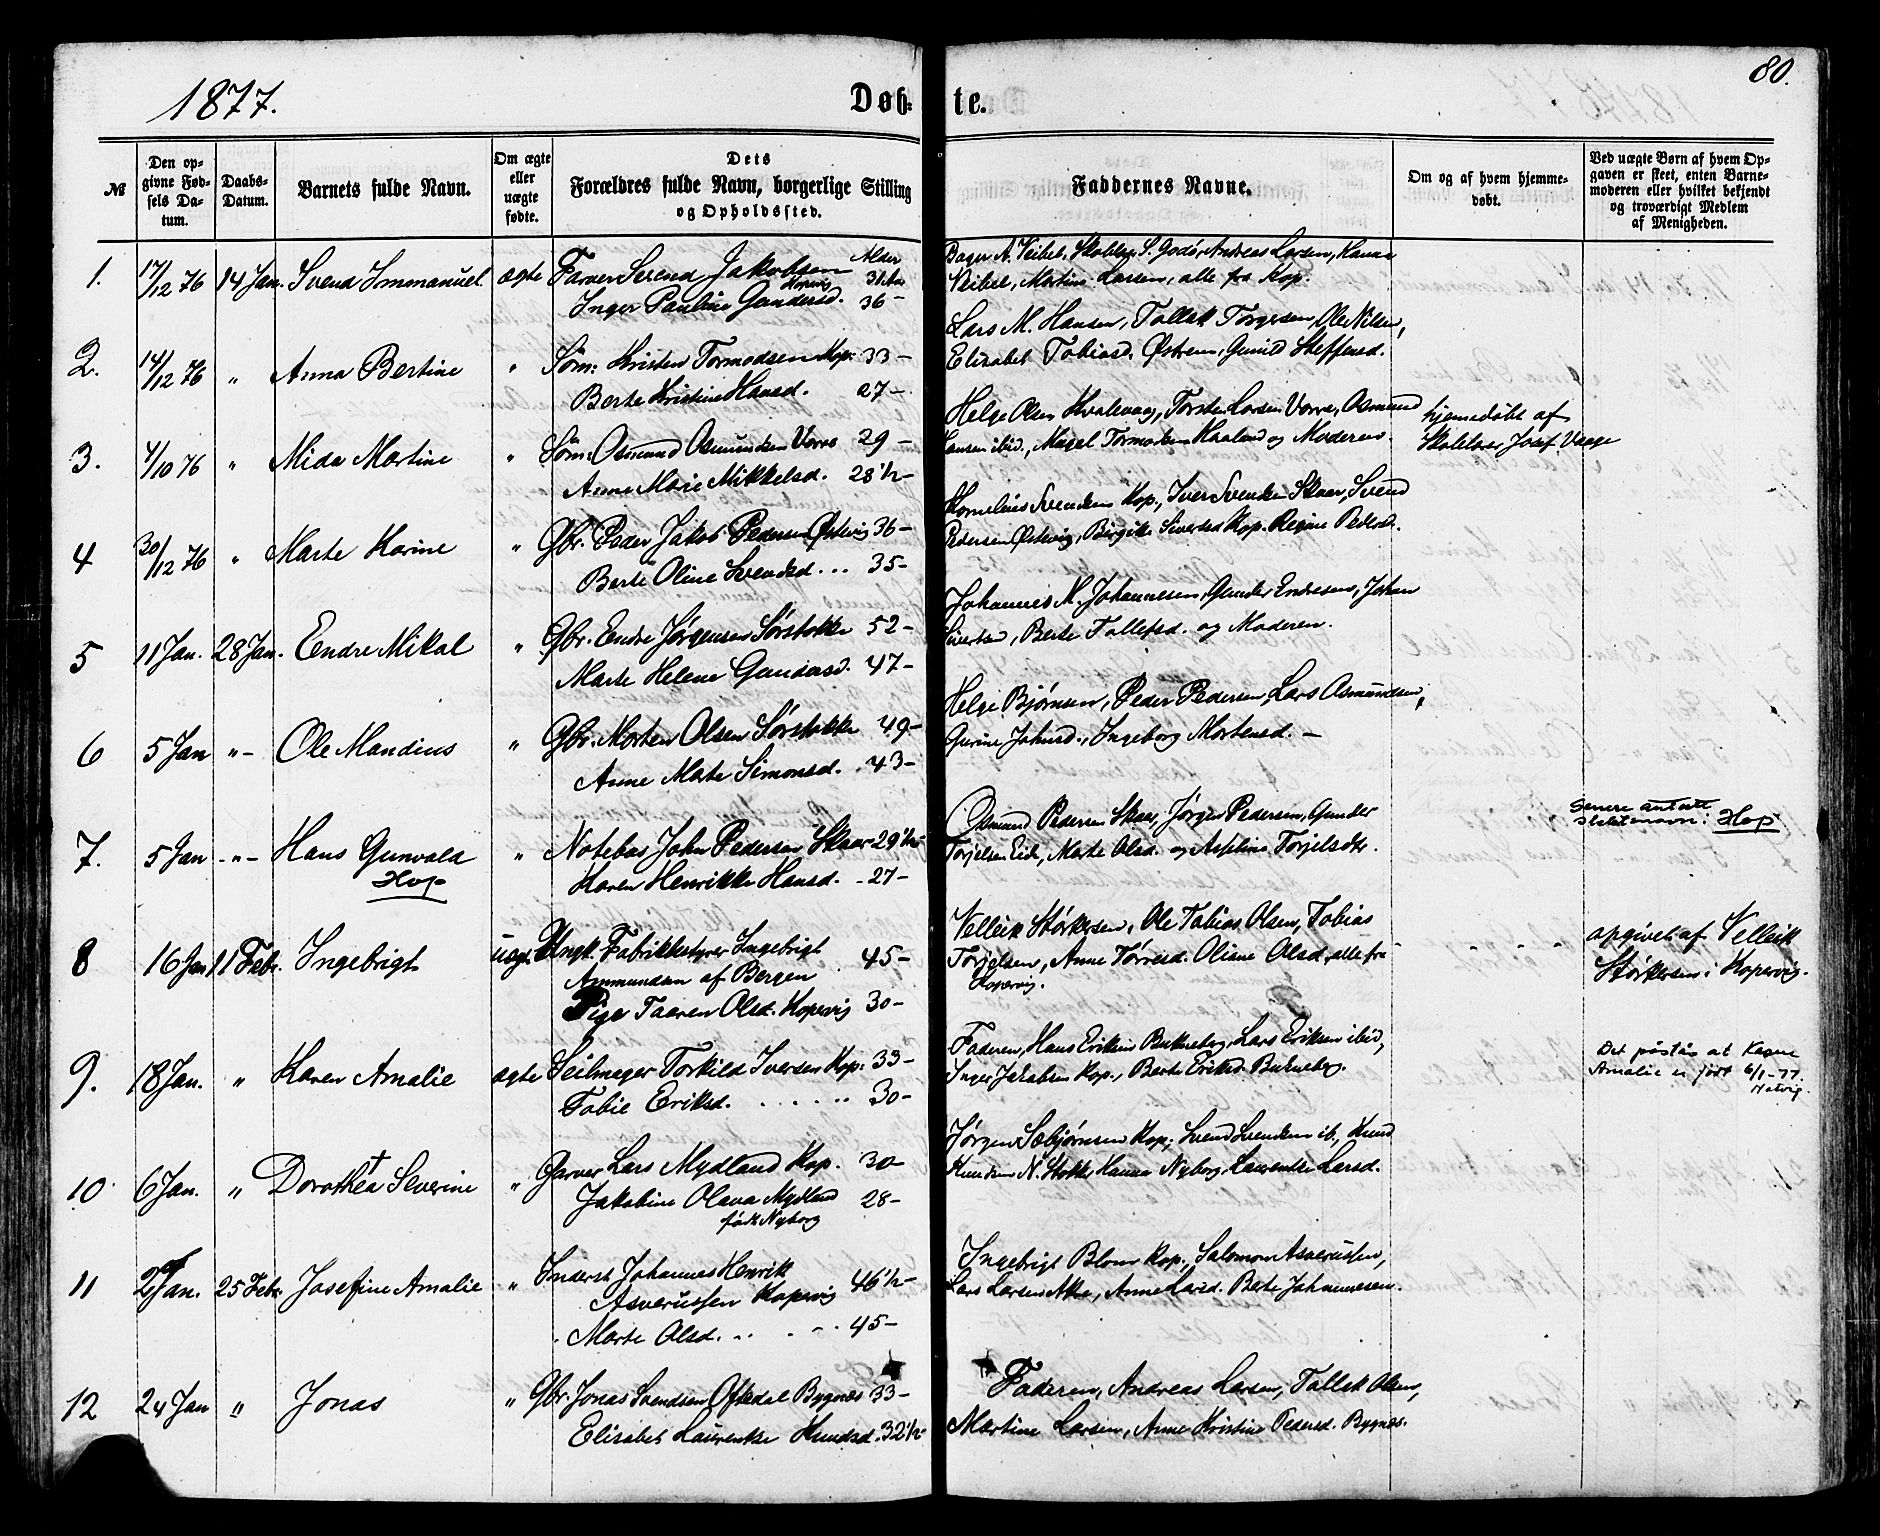 1877.
Døb-
te.
80.
№
Den op-
givne Fød-
sels Da-
tum.
Daabs-
Datum.
Barnets fulde Navn.
Om ægte
eller
uægte
fødte.
Dets
Forældres fulde Navn, borgerlige Stilling
og Opholdssted.
Faddernes Navne.
Om og af hvem hjemme-
døbt.
Ved uægte Børn af hvem Op-
gaven er skeet, enten Barne-
moderen eller hvilket bekjendt
og troværdigt Medlem
af Menigheden.
1. 17/12 76 14 Jan. Svend Immanuel ægte Farver Svend Jakobsen Alder
Inger Pauline Gundersd. 36 -
Bager A. Veibel, S. Godø, Andreas Larsen, Hanna
Veibel, Martine Larsen, alle fra Kop.
2. 14/12 76 " Anna Bertine " Søm: Kristen Tormodsen Kop: 33 -
Berte Kristine Hansd. 27 -
Lars M. Hansen, Tollak Torgersen, Ole Nilsen,
Elisabet Tobiasd. Østrem, Gunild Steffensd.
3. 4/10 76 " Mida Martine " Søm: Osmund Osmundsen Vorre 29 -
Anne Marie Mikkelsd. 28 ½ -
Helge Olsen Kvalevaag, Torsten Larsen Vorre, Osmund
Hansen ibid., Magel Tormodsen Haaland og Moderen.
hjemmedøbt af
Skolelærer Josef Vaage
4 30/12 76 " Marte Karine " Gbr. Peder Jakob Pedersen Østevig 36 -
Berte Oline Svendsd. ... 35 -
Kornelius Svendsen Kop., Iver Svendsen Skaar, Svend
Pedersen Østevig, Birgitte Sivertsd Kop. Regine Pedersd.
5 11 Jan. 28 Jan. Endre Mikal " Gbr. Endre Jørgensen Sørstokke 52 -
Marte Helene Gundersd. 47 -
Johannes M. Johannesen, Gunder Endresen, Johan
Sivertsen, Berte Tollefsd. og Moderen.
6 5 Jan " - Ole Mandius " Gbr. Morten Olsen Sørstokke 49 -
Anne Marte Simonsd. . 43 -
Helge Bjørnsen, Peder Pedersen, Lars Osmundsen,
Gurine Johnsd., Ingeborg Mortensd. -
7. 5 Jan - " - Hans Gunvald " Notebas John Pedersen Skaar 29 ½ -
Hop
Karen Henrikke Hansd. - 27 -
Osmund Pedersen Skaar, Jørgen Pedersen, Gunder
Torjelsen Eide, Marte Olsd. og Aseline Torjelsdtr.
Senere antatt
slektsnavn: Hop
8 16 Jan 11 Febr. Ingebrigt uægt. Ungk. Fabrikbestyrer Ingebrigt 45 -
Ammundsen af Bergen
Pige Taaren Olsd. Kopervig 30 -
Velleik Størkersen, Ole Tobias Olsen, Tobias
Torjelsen, Anne Tørresd. Oline Olsd. alle fra
Kopervig.
opgivet af Velleik
Størkersen i Kopervig.
9. 18 Jan. " Karen Amalie ægte Seilmager Torkild Iversen Kop: 33 -
Tobie Eriksd. . . . . . . 30 -
Faderen, Hans Eriksen Bukneberg, Lars Eriksen ibid,
Inger Jakobsen Kop., Berte Eriksd. Bukneberg.
Det påstås at Karen
Amalie er født 6/1-77.
10 6 Jan. " Dorothea † Severine " Garver Lars Mydland Kop. 30 -
Jakobine Olava Mydland 28 -
født Nyborg
Jørgen Sæbjørnsen Kop., Svend Svendsen ib., Knud
Knudsen N. Stokke, Hanna Nyborg, Laurentse Larsd.
11 2 Jan. 25 Febr. Josefine Amalie " Inderst Johannes Henrik
Asverussen Kopervig 46 ½ -
Marte Olsd. .. . - . 45 -
Ingebrigt Blom Kop., Salomon Asverussen,
Lars Larsen Akse, Anne Larsd. Berte Johannesen.
12 24 Jan " Jonas " Gbr. Jonas Svendsen Oftedal Bygnes 33 -
Elisabet Laurentse Knudsd. 32 ½ -
Faderen, Andreas Larsen, Tollak Olsen,
Martine Larsen, Anne Kristine Pedersd. Bygnes.